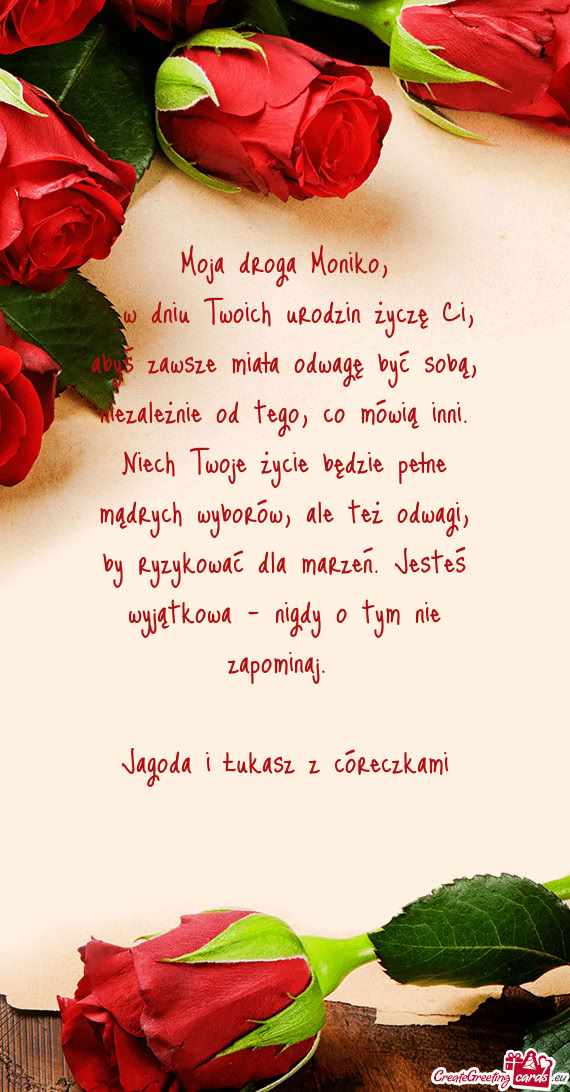 Moja droga Moniko,
w dniu Twoich urodzin życzę Ci,
abyś zawsze miała odwagę być sobą,
niezależnie od tego, co mówią inni.
Niech Twoje życie będzie pełne
mądrych wyborów, ale też odwagi,
by ryzykować dla marzeń. Jesteś
wyjątkowa - nigdy o tym nie
zapominaj.
Jagoda i Łukasz z córeczkami
CreateGreeting cards .eu